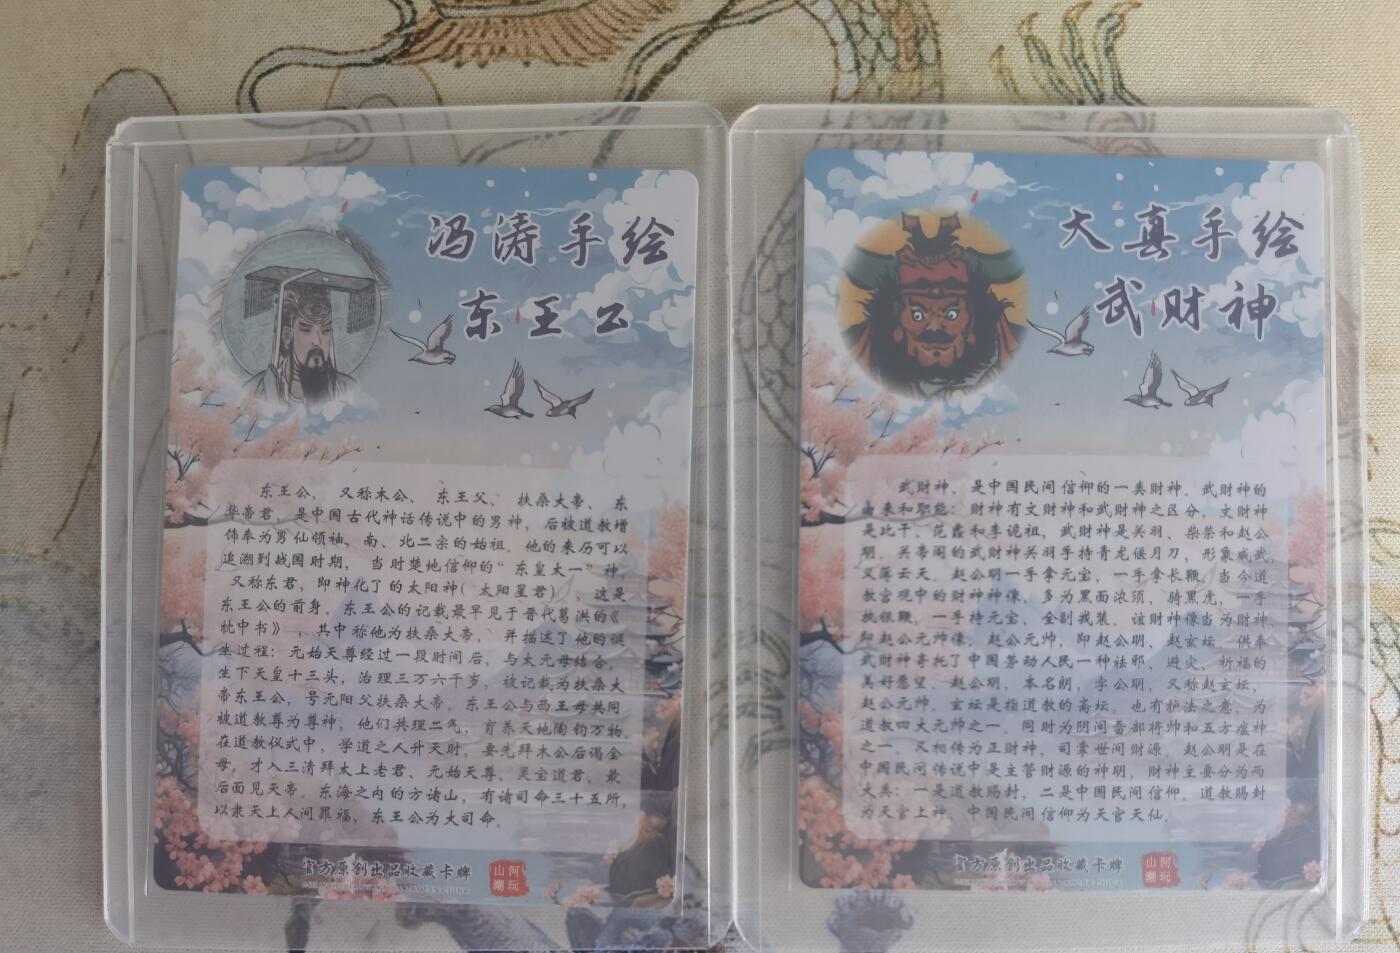 冯涛手绘
东王公
东王公， 又称木公、 东王父、 扶桑大帝、 东
华帝君，是中国古代神话传说中的男神，后被道教增
饰奉为男仙领袖、南、北二宗的始祖。他的来历可以
追溯到战国时期， 当时楚地信仰的“东皇太一”神，
又称东君，即神化了的太阳神（太阳星君），这是
东王公的前身。东王公的记载最早见于晋代葛洪的《
枕中书》，其中称他为扶桑大帝， 并描述了他的诞
生过程：元始天尊经过一段时间后，与太元母结合，
生下天皇十三头，治理三万六千岁，被记载为扶桑大
帝东王公，号元阳父扶桑大帝。东王公与西王母共同
被道教尊为尊神，他们共理二气，育养天地陶钧万物。
在道教仪式中，学道之人升天时，要先拜木公后谒金
母，才入三清拜太上老君、元始天尊、灵宝道君，最
后面见天帝。东海之内的方诸山，有诸司命三十五所，
以隶天上人间罪福，东王公为大司命。
官方原创出品收藏卡牌
山河
潮玩
大真手绘
武财神
武财神，是中国民间信仰的一类财神。武财神的
由来和职能：财神有文财神和武财神之区分，文财神
是比干、范蠡和李诡祖，武财神是关羽、柴荣和赵公
明。关帝阁的武财神关羽手持青龙偃月刀，形象威武，
义薄云天。赵公明一手拿元宝，一手拿长鞭。当今道
教宫观中的财神神像，多为黑面浓须，骑黑虎，一手
执银鞭，一手持元宝，全副戎装。该财神像当为财神
即赵公元帅像。赵公元帅，即赵公明，赵玄坛，供奉
武财神寄托了中国劳动人民一种祛邪、避灾、祈福的
美好愿望。赵公明，本名朗，字公明，又称赵玄坛，
赵公元帅。玄坛是指道教的高坛，也有护法之意。为
道教四大元帅之一，同时为阴间雷部将帅和五方瘟神
之一，又相传为正财神，司掌世间财源。赵公明是在
中国民间传说中是主管财源的神明，财神主要分为两
大类：一是道教赐封，二是中国民间信仰。道教赐封
为天官上神，中国民间信仰为天官天仙。
官方原创出品收藏卡牌
山河
潮玩